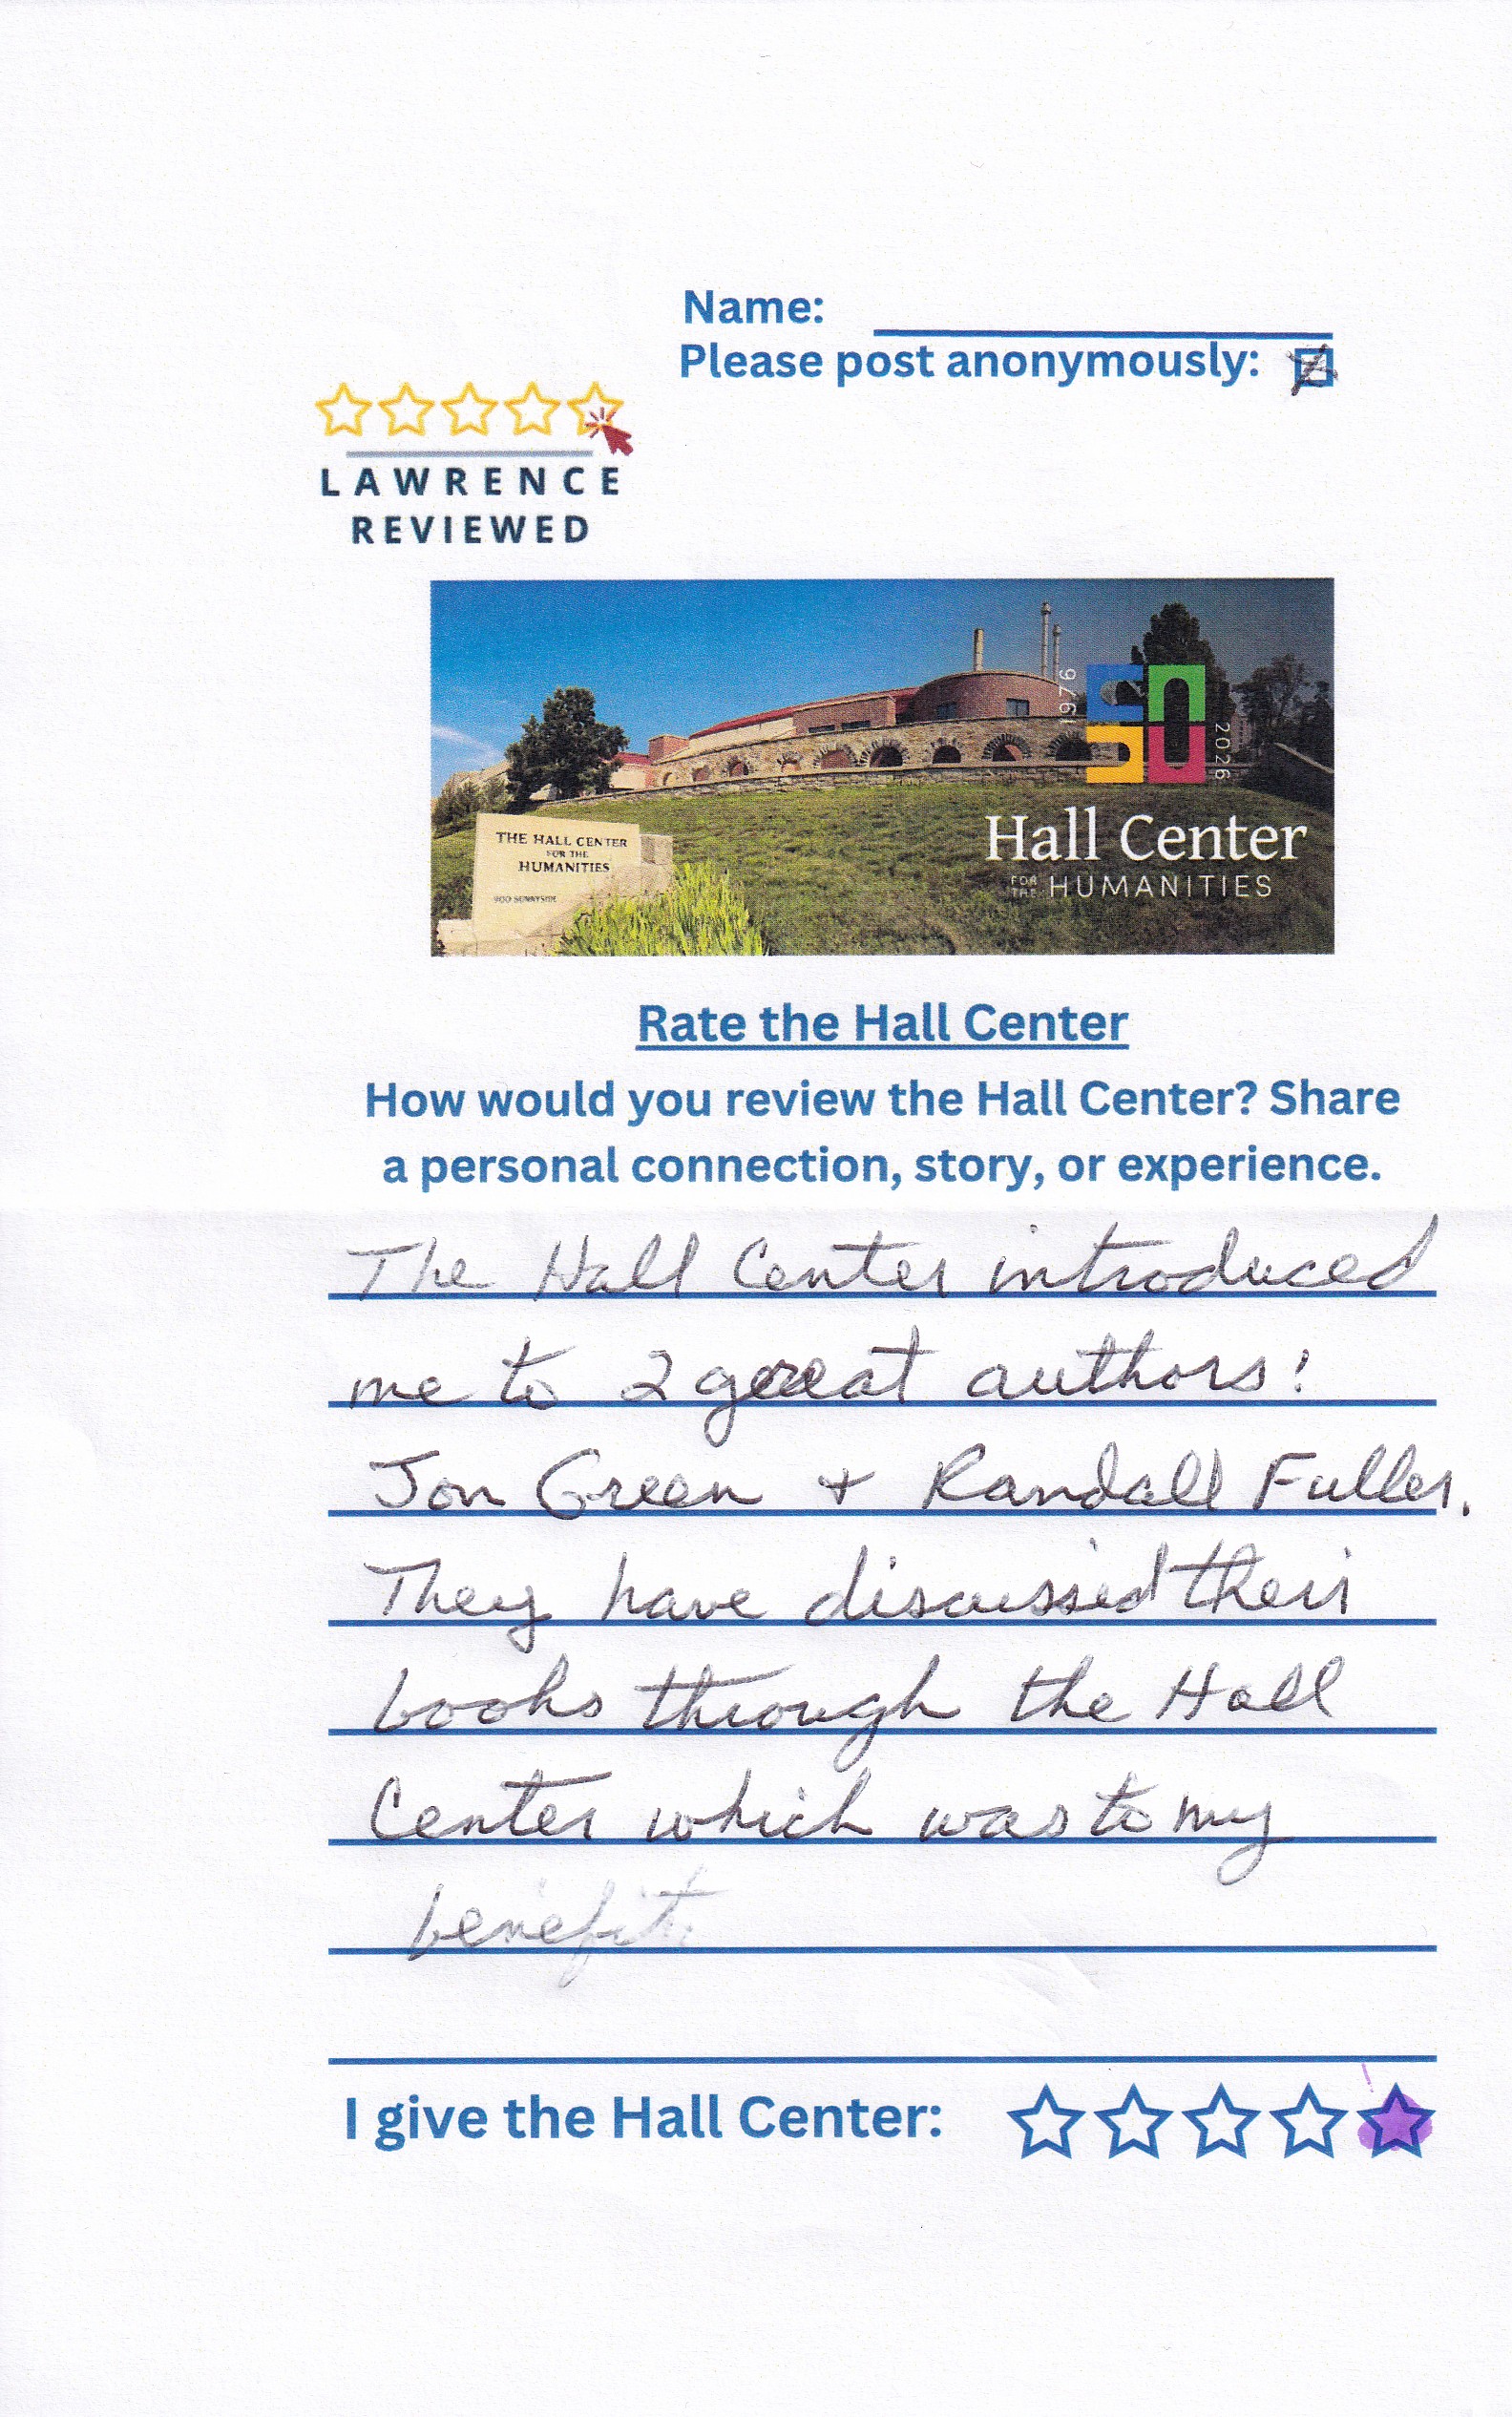 Name:
Please post anonymously:
LAWRENCE
REVIEWED
1976
50
2026
THE HALL CENTER
FOR THE
HUMANITIES
900 SUNNYSIDE
Hall Center
FOR THE HUMANITIES
Rate the Hall Center
How would you review the Hall Center? Share
a personal connection, story, or experience.
The Hall Center introduced
me to 2 great authors:
Jon Green + Randall Fuller.
They have discussed their
books through the Hall
Center which was to my
benefit.
I give the Hall Center: